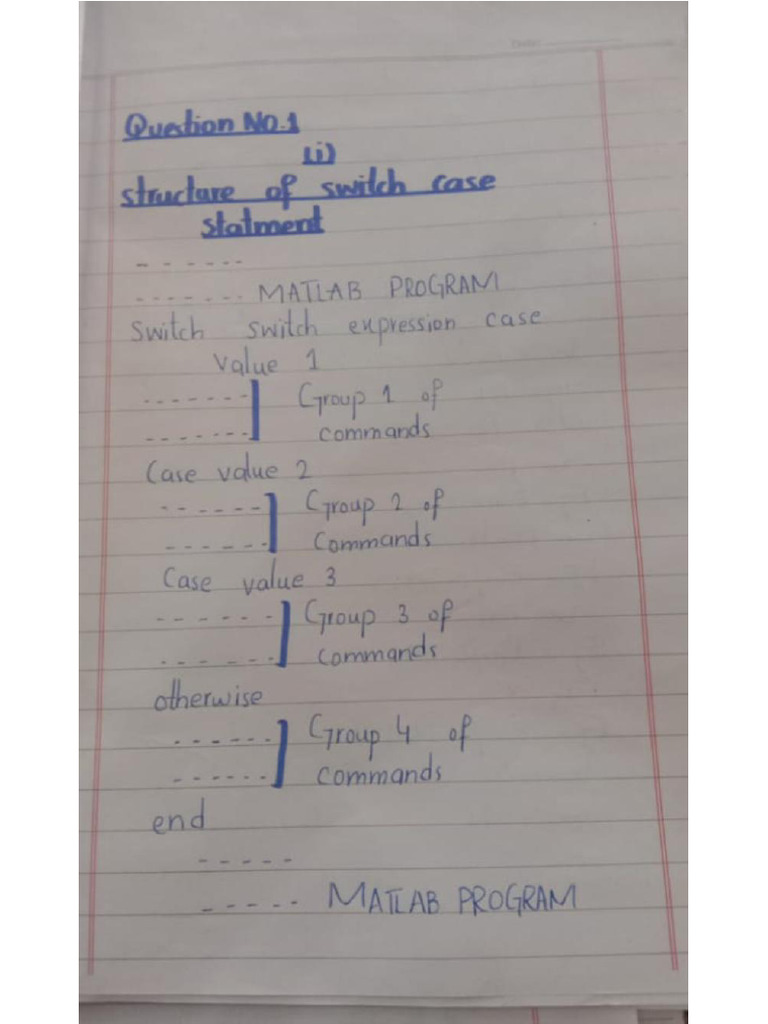 Question No.1
(i)
structure of switch case
statment
------
------- MATLAB PROGRAM
Switch switch expression case
value 1
------- ] Group 1 of
------- commands
Case value 2
------ ] Group 2 of
------ Commands
Case value 3
------ ] Group 3 of
------ commands
otherwise
------ ] Group 4 of
------ commands
end
-----
----- MATLAB PROGRAM